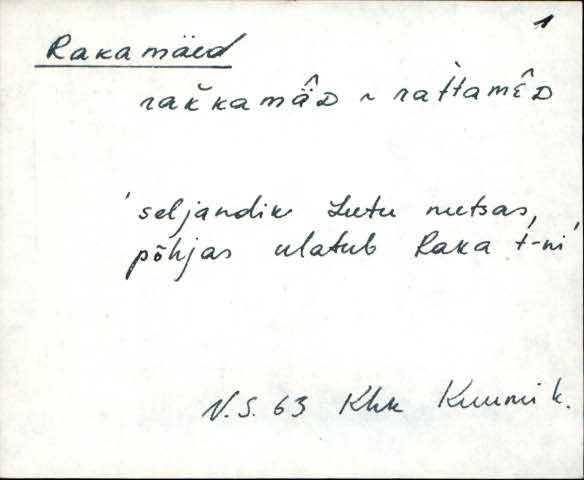 1
Rakamäed
raǩkamä̂D ~ rattamê̮D
'seljandik Lutu metsas,
põhjas ulatub Raka t-ni'
V.S. 63 Khk Kuumi k.